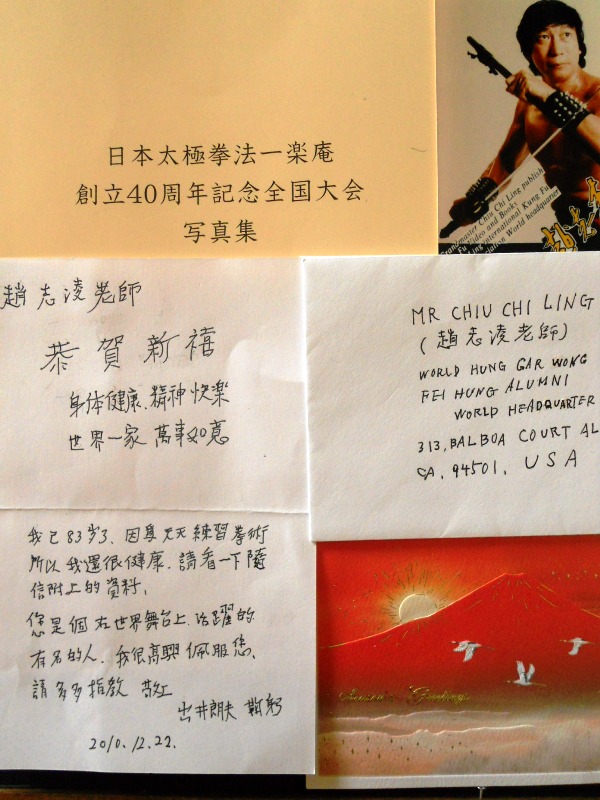 日本太極拳法一楽庵
創立40周年記念全国大会
写真集
Grandmaster Chiu Chi Ling publish
Fu Video and Books
Ling international Kung Fu
World headquarter
趙志凌老師
恭賀新禧
身体健康、精神快樂
世界一家 萬事如意
MR CHIU CHI LING
(趙志凌老師)
WORLD HUNG GAR WONG
FEI HUNG ALUMNI
WORLD HEADQUARTER
313, BALBOA COURT AL
CA, 94501, USA
我已83岁了、因為天天練習拳術
所以我還很健康、請看一下隨
信附上的資料、
您是個在世界舞台上活躍的
有名的人、我很高興佩服您、
請多多指教 敬上
出井朗夫 鞠躬
2010.12.22.
Season's Greetings